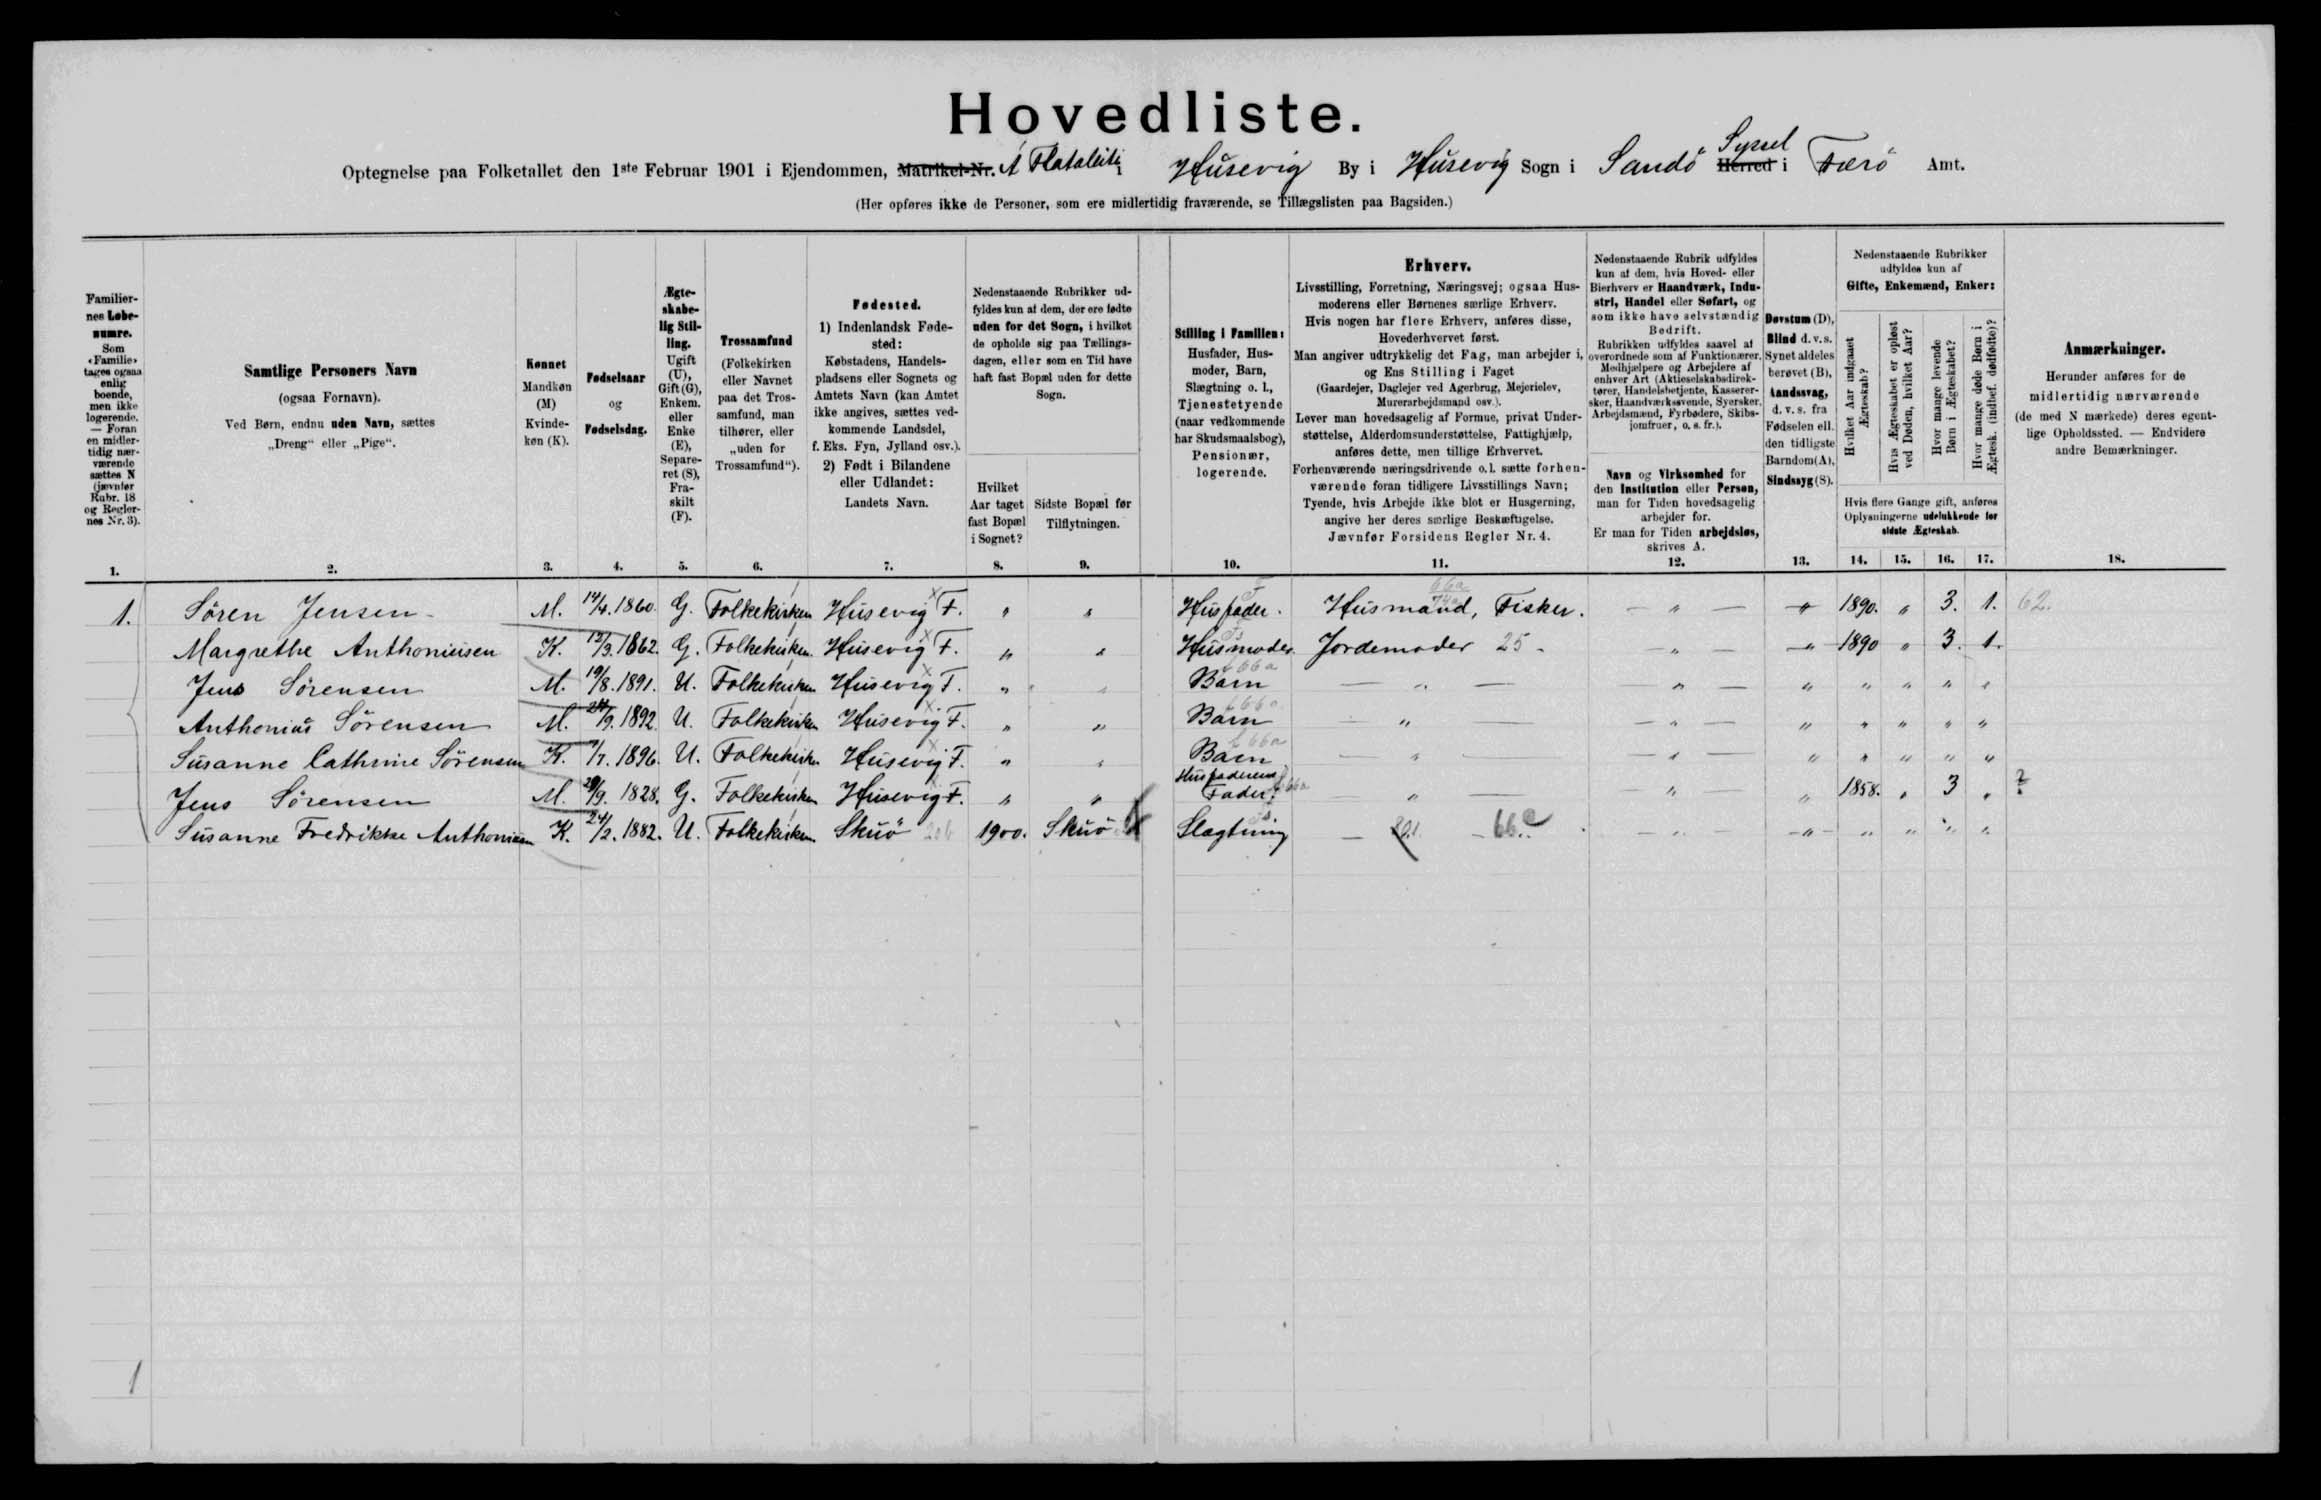 Hovedliste.
Optegnelse paa Folketallet den 1ste Februar 1901 i Ejendommen, Matrikel-Nr. Á Flataleiti i Húsevig By i Húsevig Sogn i Sandö Herred Syssel i Færö Amt.
(Her opføres ikke de Personer, som ere midlertidig fraværende, se Tillægslisten paa Bagsiden.)
Familiernes Løbenumre.
Som «Familie» tages ogsaa enlig boende, men ikke logerende. — Foran en midlertidig nærværende sættes N (jævnfør Rubr. 18 og Reglernes Nr. 3).
Samtlige Personers Navn
(ogsaa Fornavn).
Ved Børn, endnu uden Navn, sættes
„Dreng“ eller „Pige“.
Kønnet
Mandkøn (M)
Kvindekøn (K).
Fødselsaar
og
Fødselsdag.
Ægteskabelig Stilling.
Ugift (U), Gift (G), Enkem. eller Enke (E), Separeret (S), Fraskilt (F).
Trossamfund
(Folkekirken eller Navnet paa det Trossamfund, man tilhører, eller „uden for Trossamfund“).
Fødested.
1) Indenlandsk Fødested:
Købstadens, Handelspladsens eller Sognets og Amtets Navn (kan Amtet ikke angives, sættes vedkommende Landsdel, f. Eks. Fyn, Jylland osv.).
2) Født i Bilandene eller Udlandet:
Landets Navn.
Nedenstaaende Rubrikker udfyldes kun af dem, der ere fødte uden for det Sogn, i hvilket de opholde sig paa Tællingsdagen, eller som en Tid have haft fast Bopæl uden for dette Sogn.
Hvilket Aar taget fast Bopæl i Sognet?
Sidste Bopæl før Tilflytningen.
Stilling i Familien:
Husfader, Husmoder, Barn, Slægtning o. l., Tjenestetyende (naar vedkommende har Skudsmaalsbog), Pensionær, logerende.
Erhverv.
Livsstilling, Forretning, Næringsvej; ogsaa Husmoderens eller Børnenes særlige Erhverv.
Hvis nogen har flere Erhverv, anføres disse, Hovederhvervet først.
Man angiver udtrykkelig det Fag, man arbejder i, og Ens Stilling i Faget
(Gaardejer, Daglejer ved Agerbrug, Mejerielev, Murerarbejdsmand osv.).
Lever man hovedsagelig af Formue, privat Understøttelse, Alderdomsunderstøttelse, Fattighjælp, anføres dette, men tillige Erhvervet.
Forhenværende næringsdrivende o. l. sætte forhenværende foran tidligere Livsstillings Navn;
Tyende, hvis Arbejde ikke blot er Husgerning, angive her deres særlige Beskæftigelse.
Jævnfør Forsidens Regler Nr. 4.
Nedenstaaende Rubrik udfyldes kun af dem, hvis Hoved- eller Bierhverv er Haandværk, Industri, Handel eller Søfart, og som ikke have selvstændig Bedrift.
Rubrikken udfyldes saavel af overordnede som af Funktionærer, Medhjælpere og Arbejdere af enhver Art (Aktieselskabsdirektører, Handelsbetjente, Kasserersker, Haandværkssvende, Syersker, Arbejdsmænd, Fyrbødere, Skibsjomfruer, o. s. fr.).
Navn og Virksomhed for den Institution eller Person, man for Tiden hovedsagelig arbejder for.
Er man for Tiden arbejdsløs, skrives A.
Døvstum (D), Blind d. v. s. Synet aldeles berøvet (B), Aandssvag, d. v. s. fra Fødselen ell. den tidligste Barndom (A), Sindssyg (S).
Nedenstaaende Rubrikker udfyldes kun af
Gifte, Enkemænd, Enker:
Hvilket Aar indgaaet Ægteskab?
Hvis Ægteskabet er opløst ved Døden, hvilket Aar?
Hvor mange levende Børn i Ægteskabet?
Hvor mange døde Børn i Ægtesk. (indbef. dødfødte)?
Hvis flere Gange gift, anføres Oplysningerne udelukkende for sidste Ægteskab.
Anmærkninger.
Herunder anføres for de midlertidig nærværende (de med N mærkede) deres egentlige Opholdssted. — Endvidere andre Bemærkninger.
1. 2. 3. 4. 5. 6. 7. 8. 9. 10. 11. 12. 13. 14. 15. 16. 17. 18.
1. Sören Jensen M. 14/4. 1860. G. Folkekirken Húsevig F. " " Husfader. Húsmand, Fisker. — " — " 1890. " 3. 1. 62.
Margrethe Anthoniusen K. 1862. G. Folkekirken. Húsevig F. " " Húsmoder. Jordemoder 25 — " — " 1890 " 3. 1.
Jens Sörensen M. 19/8. 1891. U. Folkekirken Húsevig F. " " Barn — " — " — " " " " "
Anthoniús Sörensen M. 24/9. 1892. U. Folkekirken Húsevig F. " " Barn — " — " — " " " " "
Súsanne Cathrine Sörensen K. 1896. U. Folkekirken Húsevig F. " " Barn — " — " — " " " " "
Jens Sörensen M. 1828. G. Folkekirken Húsevig F. " " Husfaderens Fader. — " — " — " 1858. " 3 " ?
Súsanne Fredrikke Anthoniusen K. 24/2. 1882. U. Folkekirken Skúö 1900. Skúö Slægtning — 66a — " — " " " " "
1